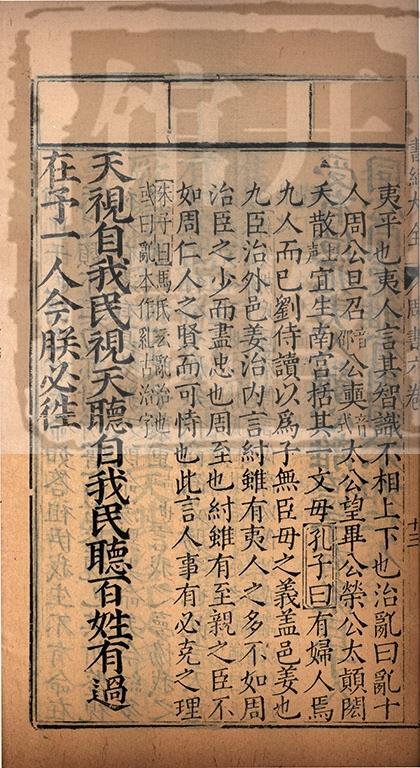 書經大全 周書六卷 十三
夷平也夷人言其智識不相上下也治亂曰亂十
人周公旦召音邵公奭音太公望畢公榮公太顛閎
夭散上聲宜生南宮括其一文母孔子曰有婦人焉
九人而已劉侍讀以爲子無臣母之義盖邑姜也
九臣治外邑姜治内言紂雖有夷人之多不如周
治臣之少而盡忠也周至也紂雖有至親之臣不
如周仁人之賢而可恃也此言人事有必克之理
朱子曰馬氏云亂治也
或曰亂本作乿古治字
天視自我民視天聽自我民聽百姓有過
在予一人今朕必往